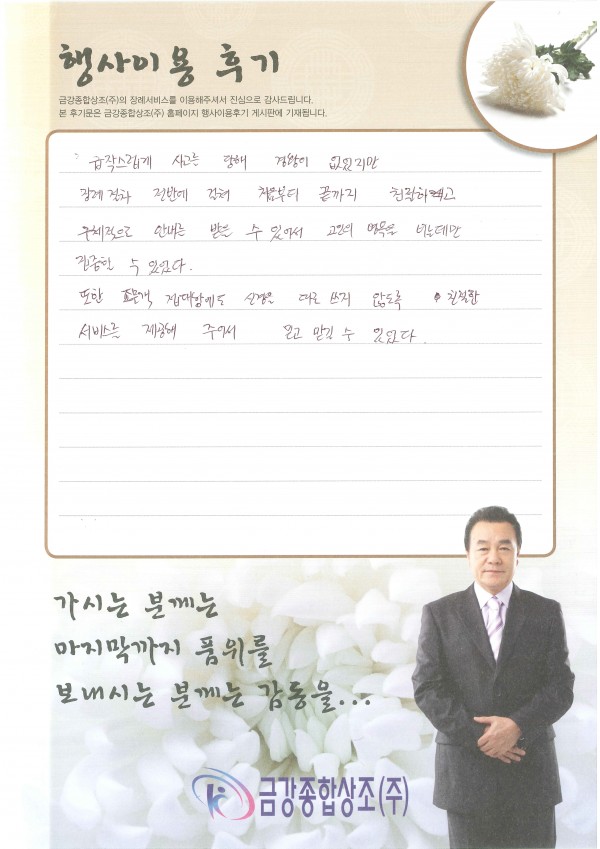 행사이용 후기
금강종합상조(주)의 장례서비스를 이용해주셔서 진심으로 감사드립니다.
본 후기문은 금강종합상조(주) 홈페이지 행사이용후기 게시판에 기재됩니다.
급작스럽게 사고를 당해 경황이 없었지만
장례절차 전반에 걸쳐 처음부터 끝까지 친절하고
구체적으로 안내를 받을 수 있어서 고인의 명복을 비는데만
집중할 수 있었다.
또한 조문객 접대상에도 신경을 따로 쓰지 않도록 친절한
서비스를 제공해 주어서 믿고 맡길 수 있었다.
가시는 분께는
마지막까지 품위를
보내시는 분께는 감동을...
금강종합상조(주)